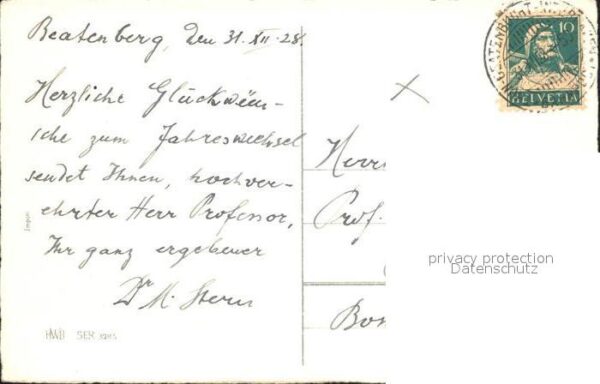 Beatenberg, den 31. XII. 28.
Herzliche Glückwün-
sche zum Jahreswechsel
sendet Ihnen, hochver-
ehrter Herr Professor,
Ihr ganz ergebener
Dr M. Stern
HWB SER
Import
10
HELVETIA
Herrn
Prof.
Bon
privacy protection
Datenschutz